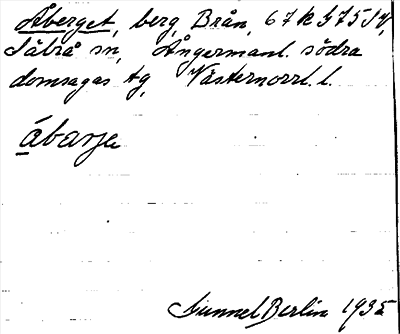 Åberget, berg, Brån, 67 k S 75 S V,
Säbrå sn, Ångermanl. södra
domsagas tg, Västernorrl. l.
åbarje
Gunnel Berlin 1935